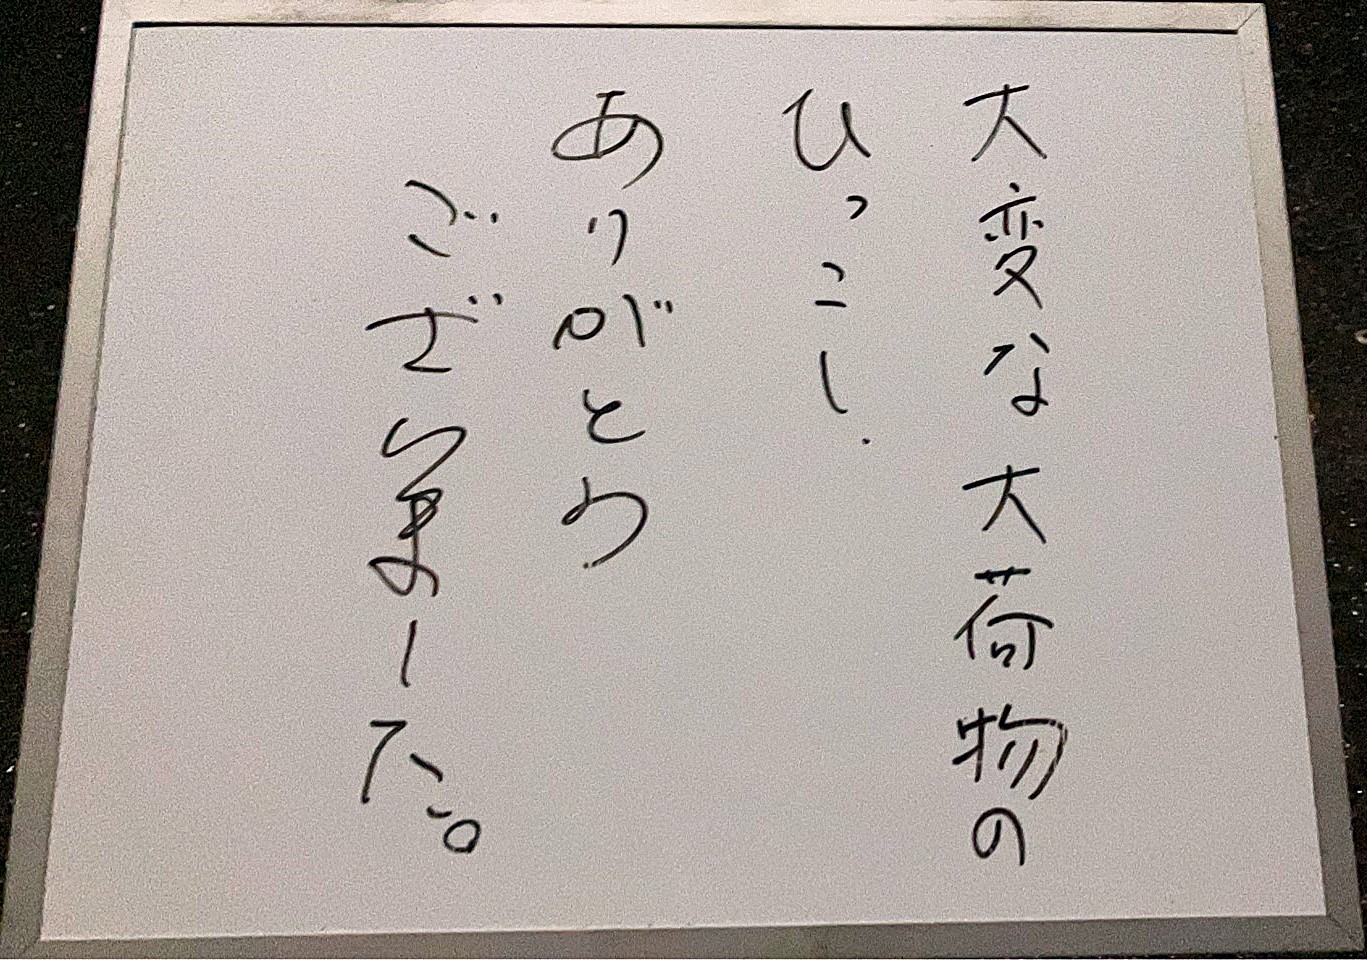 大変な大荷物の
ひっこし.
ありがとう
ございました。